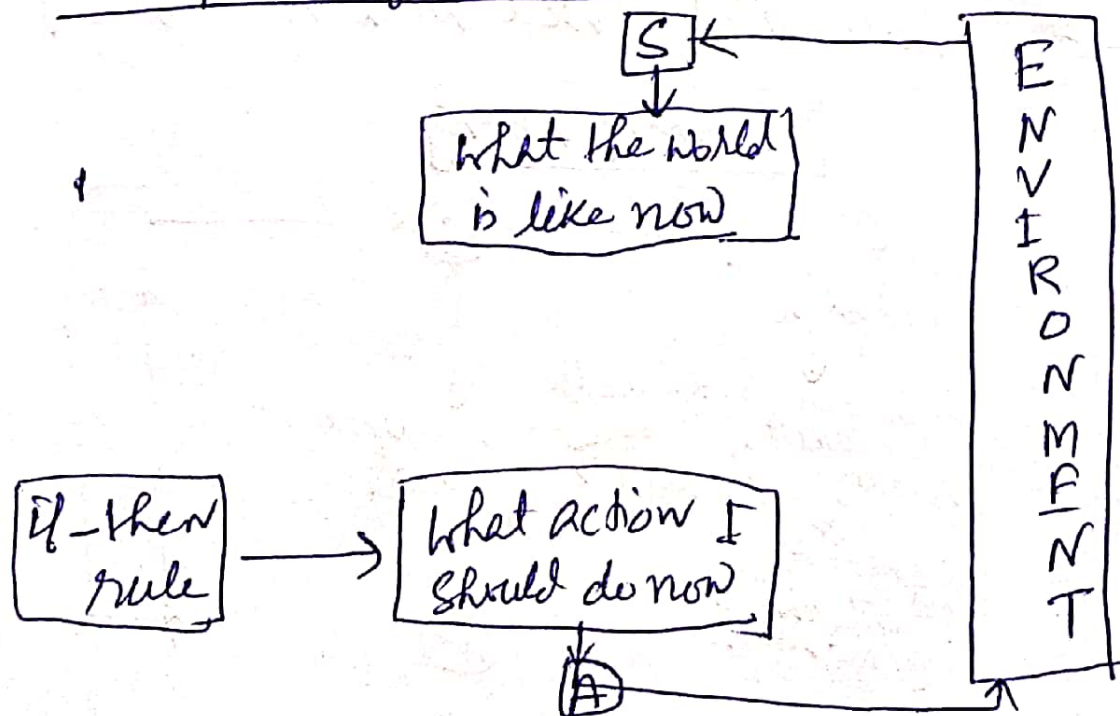 S
what the world
is like now
ENVIRONMENT
if-then
rule
What action I
should do now
A